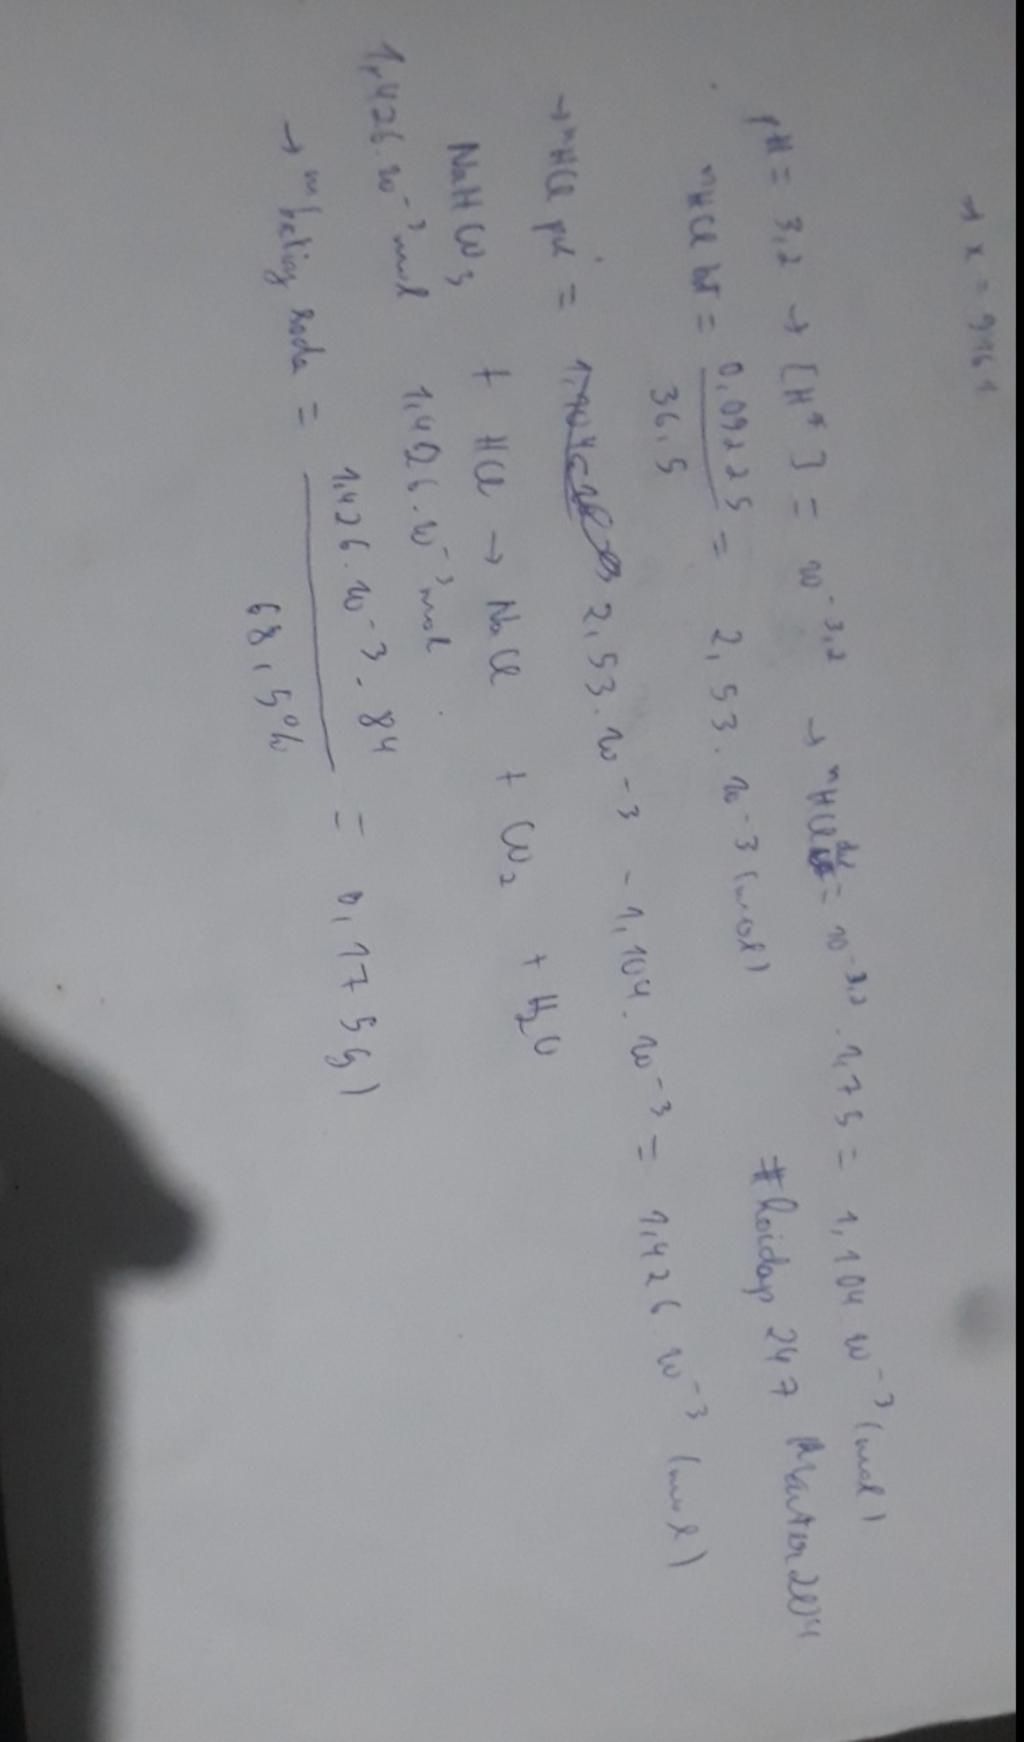 → x = 9161
pH = 3,2 → [H⁺] = 10⁻³,² → nHCl dư = 10⁻³,² . 1,75 = 1,104 10⁻³ (mol)
nHCl bđ = 0,09225 / 36,5 = 2,53 . 10⁻³ (mol)
#hoidap 247
→ nHCl pư = 2,53 . 10⁻³ - 1,104 . 10⁻³ = 1,426 10⁻³ (mol)
NaHCO₃ + HCl → NaCl + CO₂ + H₂O
1,426 . 10⁻³ mol 1,426 . 10⁻³ mol
→ m baking soda = 1,426 . 10⁻³ . 84 / 68,5% = 0,175 g)